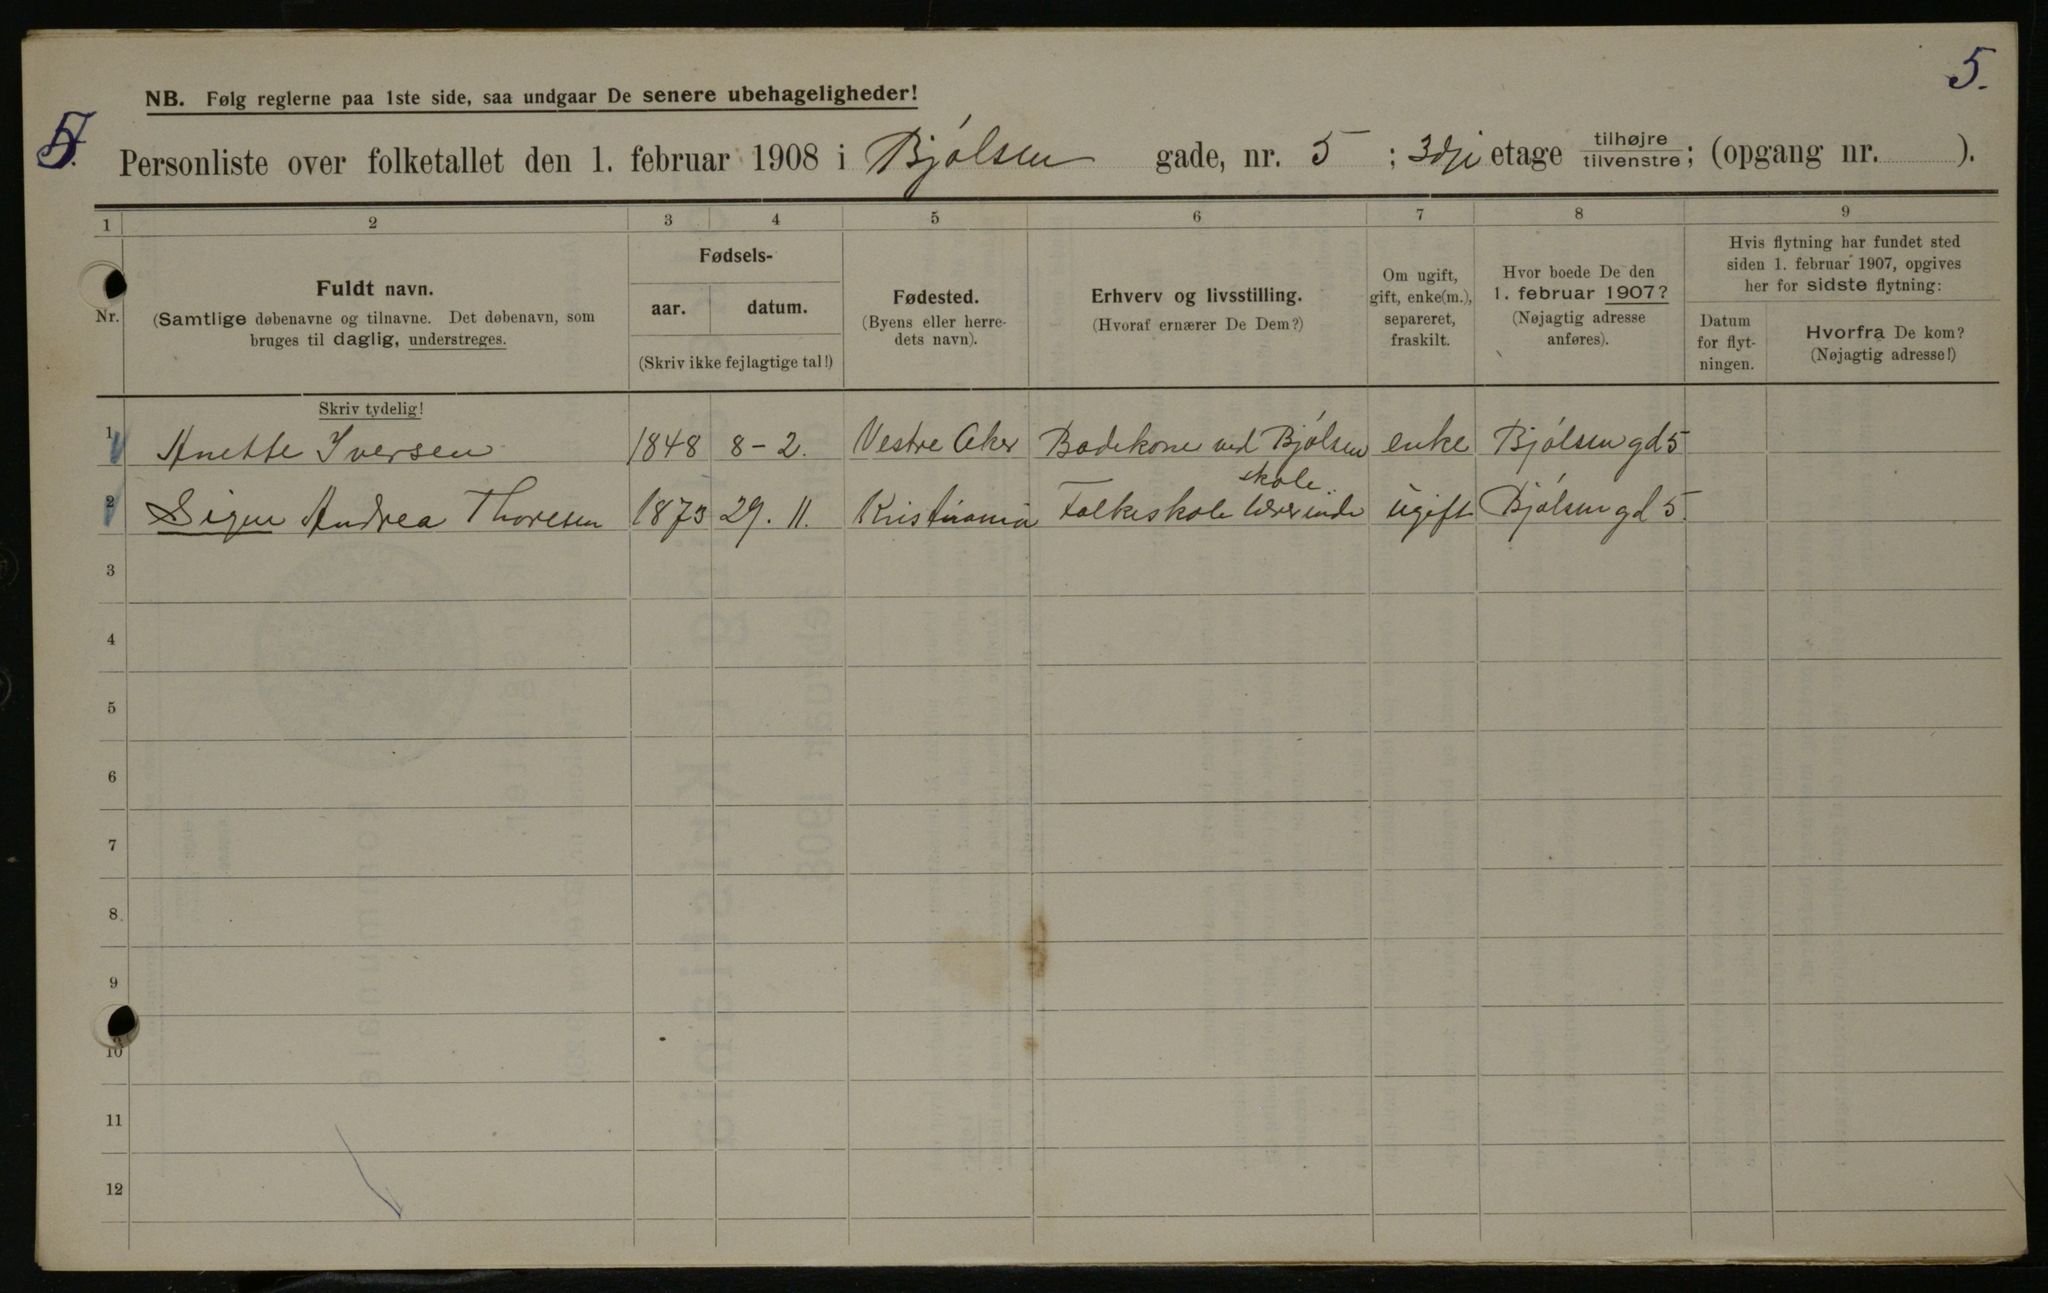 5.
NB. Følg reglerne paa 1ste side, saa undgaar De senere ubehageligheder!
5. Personliste over folketallet den 1. februar 1908 i Bjølsen gade, nr. 5 ; 3dje etage tilhøjre tilvenstre; (opgang nr. ).
1 2 3 4 5 6 7 8 9
Nr.
Fuldt navn.
(Samtlige døbenavne og tilnavne. Det døbenavn, som
bruges til daglig, understreges.
Fødsels-
aar. datum.
(Skriv ikke fejlagtige tal!)
Fødested.
(Byens eller herre-
dets navn).
Erhverv og livsstilling.
(Hvoraf ernærer De Dem?)
Om ugift,
gift, enke(m.),
separeret,
fraskilt.
Hvor boede De den
1. februar 1907?
(Nøjagtig adresse
anføres).
Hvis flytning har fundet sted
siden 1. februar 1907, opgives
her for sidste flytning:
Datum
for flyt-
ningen.
Hvorfra De kom?
(Nøjagtig adresse!)
Skriv tydelig!
1 Anette Iversen 1848 8-2. Vestre Aker Badekone ved Bjølsen enke Bjølsengd 5
skole.
2 Signe Andrea Thoresen 1873 29. 11. Kristiania Folkeskolelærerinde ugift Bjølsengd 5.
3
4
5
6
7
8
9
10
11
12